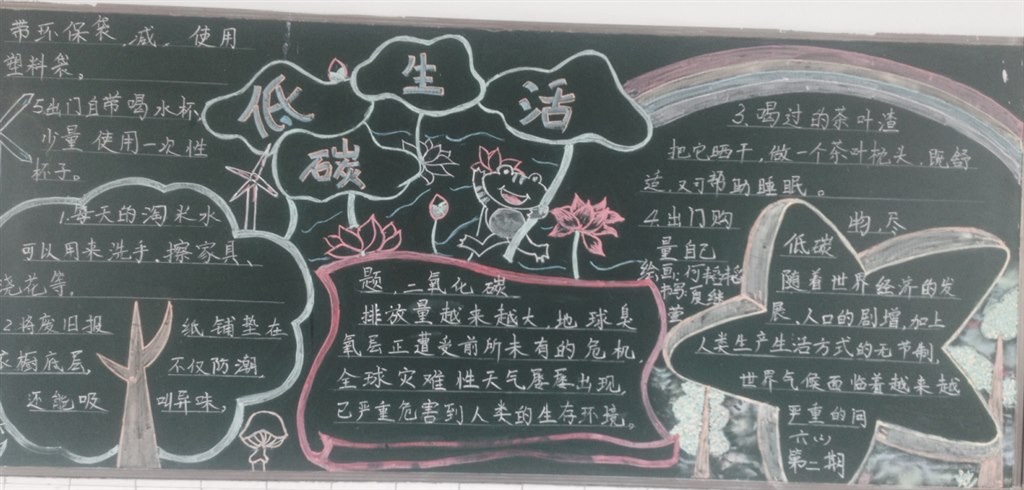 带环保袋,减,使用
塑料袋。
5出门自带喝水杯,
少量使用一次性
杯子。
低碳生活
1.每天的淘米水
可以用来洗手、擦家具、
浇花等。
2.将废旧报纸,铺垫在
衣橱底层,不仅防潮,
还能吸叫异味。
3.喝过的茶叶渣
把它晒干,做一个茶叶枕头,既舒
适,又可帮助睡眠。
4.出门购物,尽
量自己
低碳
随着世界经济的发
展、人口的剧增,加上
人类生产生活方式的无节制,
世界气候面临着越来越
严重的问
题,二氧化碳
排放量越来越大,地球臭
氧层正遭受前所未有的危机,
全球灾难性天气屡屡出现,
已严重危害到人类的生存环境。
六(4)
第二期